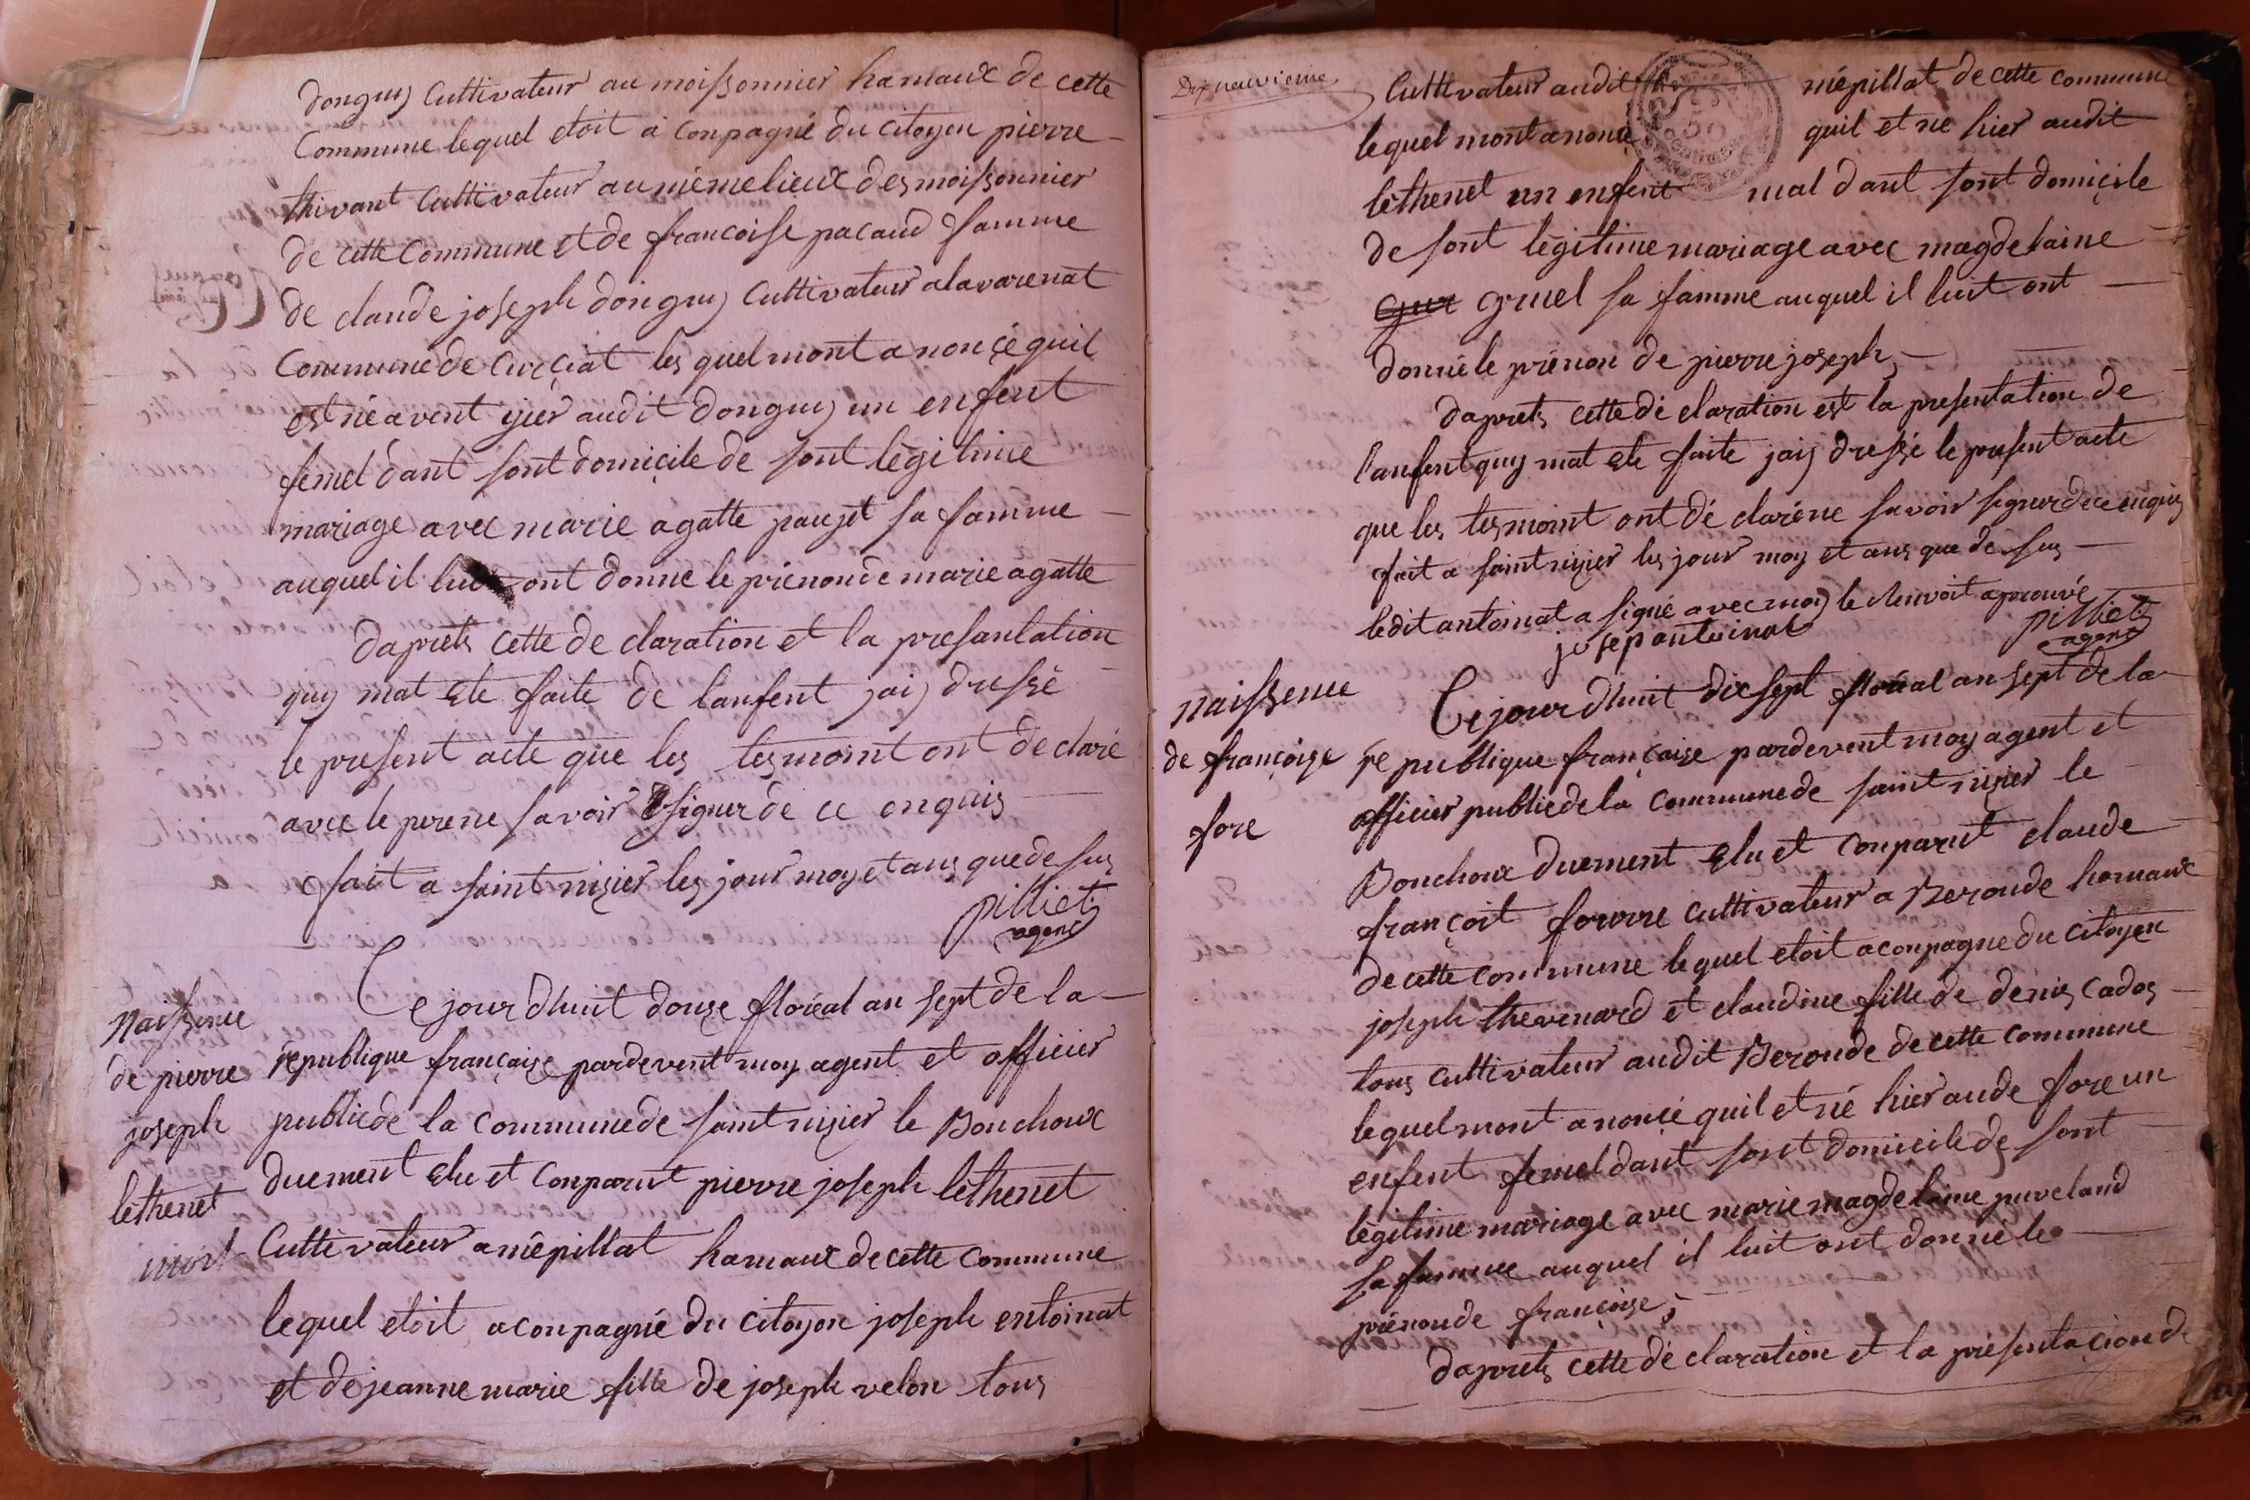 donguy Cultivateur au moissonnier hamaux de cette
Commune lequel etoit a conpagné du citoyen pierre
thivant Cultivateur au même lieux des moissonnier
de cette Commune et de francoise pacaud famme
de claude joseph donguy Cultivateur a la varenat
Commune de Curciat les quel mont a nonçé quil
est né avent yier audit donguy un enfent
femel dant sont domiçile de sont légitime
mariage avec marie agatte paujet sa famme
auquel il luit ont donne le prénon de marie agatte
daprets cette de claration et la presantation
quy mat ete faite de lanfent jaiy dressé
le present acte que les tesmoint ont de claré
avec le pere ne savoir signer de ce enquis
fait a saint nizier les jour moy et ans que de sus
pilliet
agent
Naissence
de pierre
joseph
lethenet
mort
Ce jour dhuit douze floréal an sept de la
république française pardevent moy agent et officier
public de la commune de saint nizier le Bouchoux
duement elu et conparut pierre joseph lethenet
Cultivateur a népillat hamaux de cette Commune
lequel etoit a conpagné du citoyen joseph entoinat
et de jeanne marie fille de joseph velon tous
Dix neuvieme
Cultivateur audit népillat de cette commune
lequel mont anoncé quil et né hier audit
lethenet un enfent mal dant sont domiçile
de sont légitime mariage avec magdelaine
gruel sa famme auquel il luit ont
donné le prénon de pierre joseph
daprets cette dé claration est la presentation de
lanfent quy mat ete faite jaiy dressé le present acte
que les tesmoint ont dé claré ne savoir signer de ce enquis
fait a saint nizier les jour moy et ans que de sus
ledit antoinat a signé avec moy le renvoit aprouvé
josep antoinat
pilliet
agent
Naissence
de françoise
fore
Ce jour dhuit dix sept floréal an sept de la
république française pardevent moy agent et
officier public de la commune de saint nizier le
Bouchoux duement elu et conparut claude
françoit forere cultivateur a Beroude hamaux
de cette commune lequel etoit a conpagne du citoyen
joseph thevenard et claudine fille de denis cados
tous cultivateur audit Beroude de cette commune
lequel mont a noncé quil et né hier aude fore un
enfent femel dant sont domicile de sont
légitime mariage avec marie magdelaine puveland
sa famme auquel il luit ont donné le
prénon de françoise
daprets cette dé claration et la présentaçion de